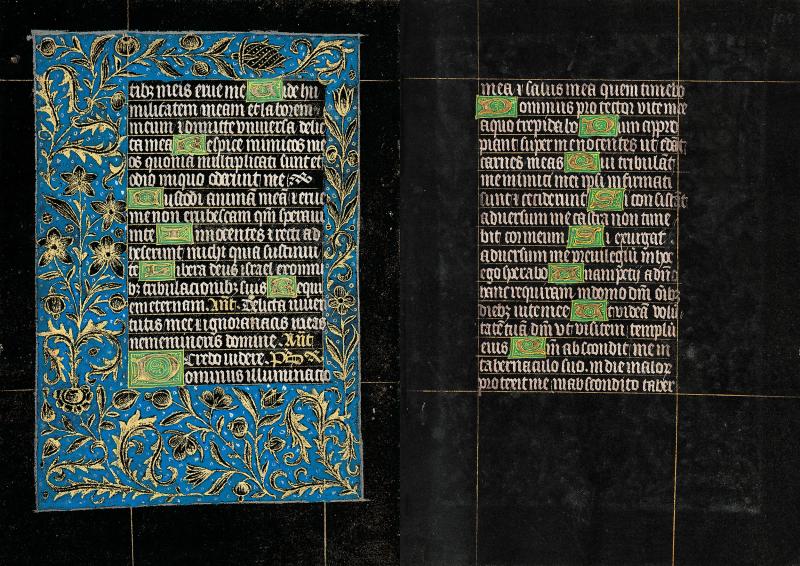 tibus meis erue me Vide hu
militatem meam et laborem
meum et dimitte vniuersa delic
ta mea Respice inimicos me
os quoniam multiplicati sunt et
odio iniquo oderunt me
Custodi animam meam et erue
me non erubescam quoniam speraui
in te Innocentes et recti ad
heserunt michi quia sustinui
te Libera deus israel ex omni
bus tribulacionibus suis Requi
em eternam. Ant. Delicta iuuen
tutis mee et ignorancias meas
ne memineris domine. Ant.
Credo videre. Ps. D.
Dominus illuminacio
mea et salus mea quem timebo
Dominus protector vite mee
a quo trepidabo Dum appro
piant super me nocentes ut edant
carnes meas Qui tribulant
me inimici mei ipsi infirmati
sunt et ceciderunt Si consistant
aduersum me castra non time
bit cor meum Si exurgat
aduersum me prelium in hoc
ego sperabo Unam petii a domino
hanc requiram in domo domini omnibus
diebus vite mee Ut videam volu
tatem domini vt visitem templum
eius Quoniam abscondit me in
tabernaculo suo. in die malorum
protexit me in abscondito taber